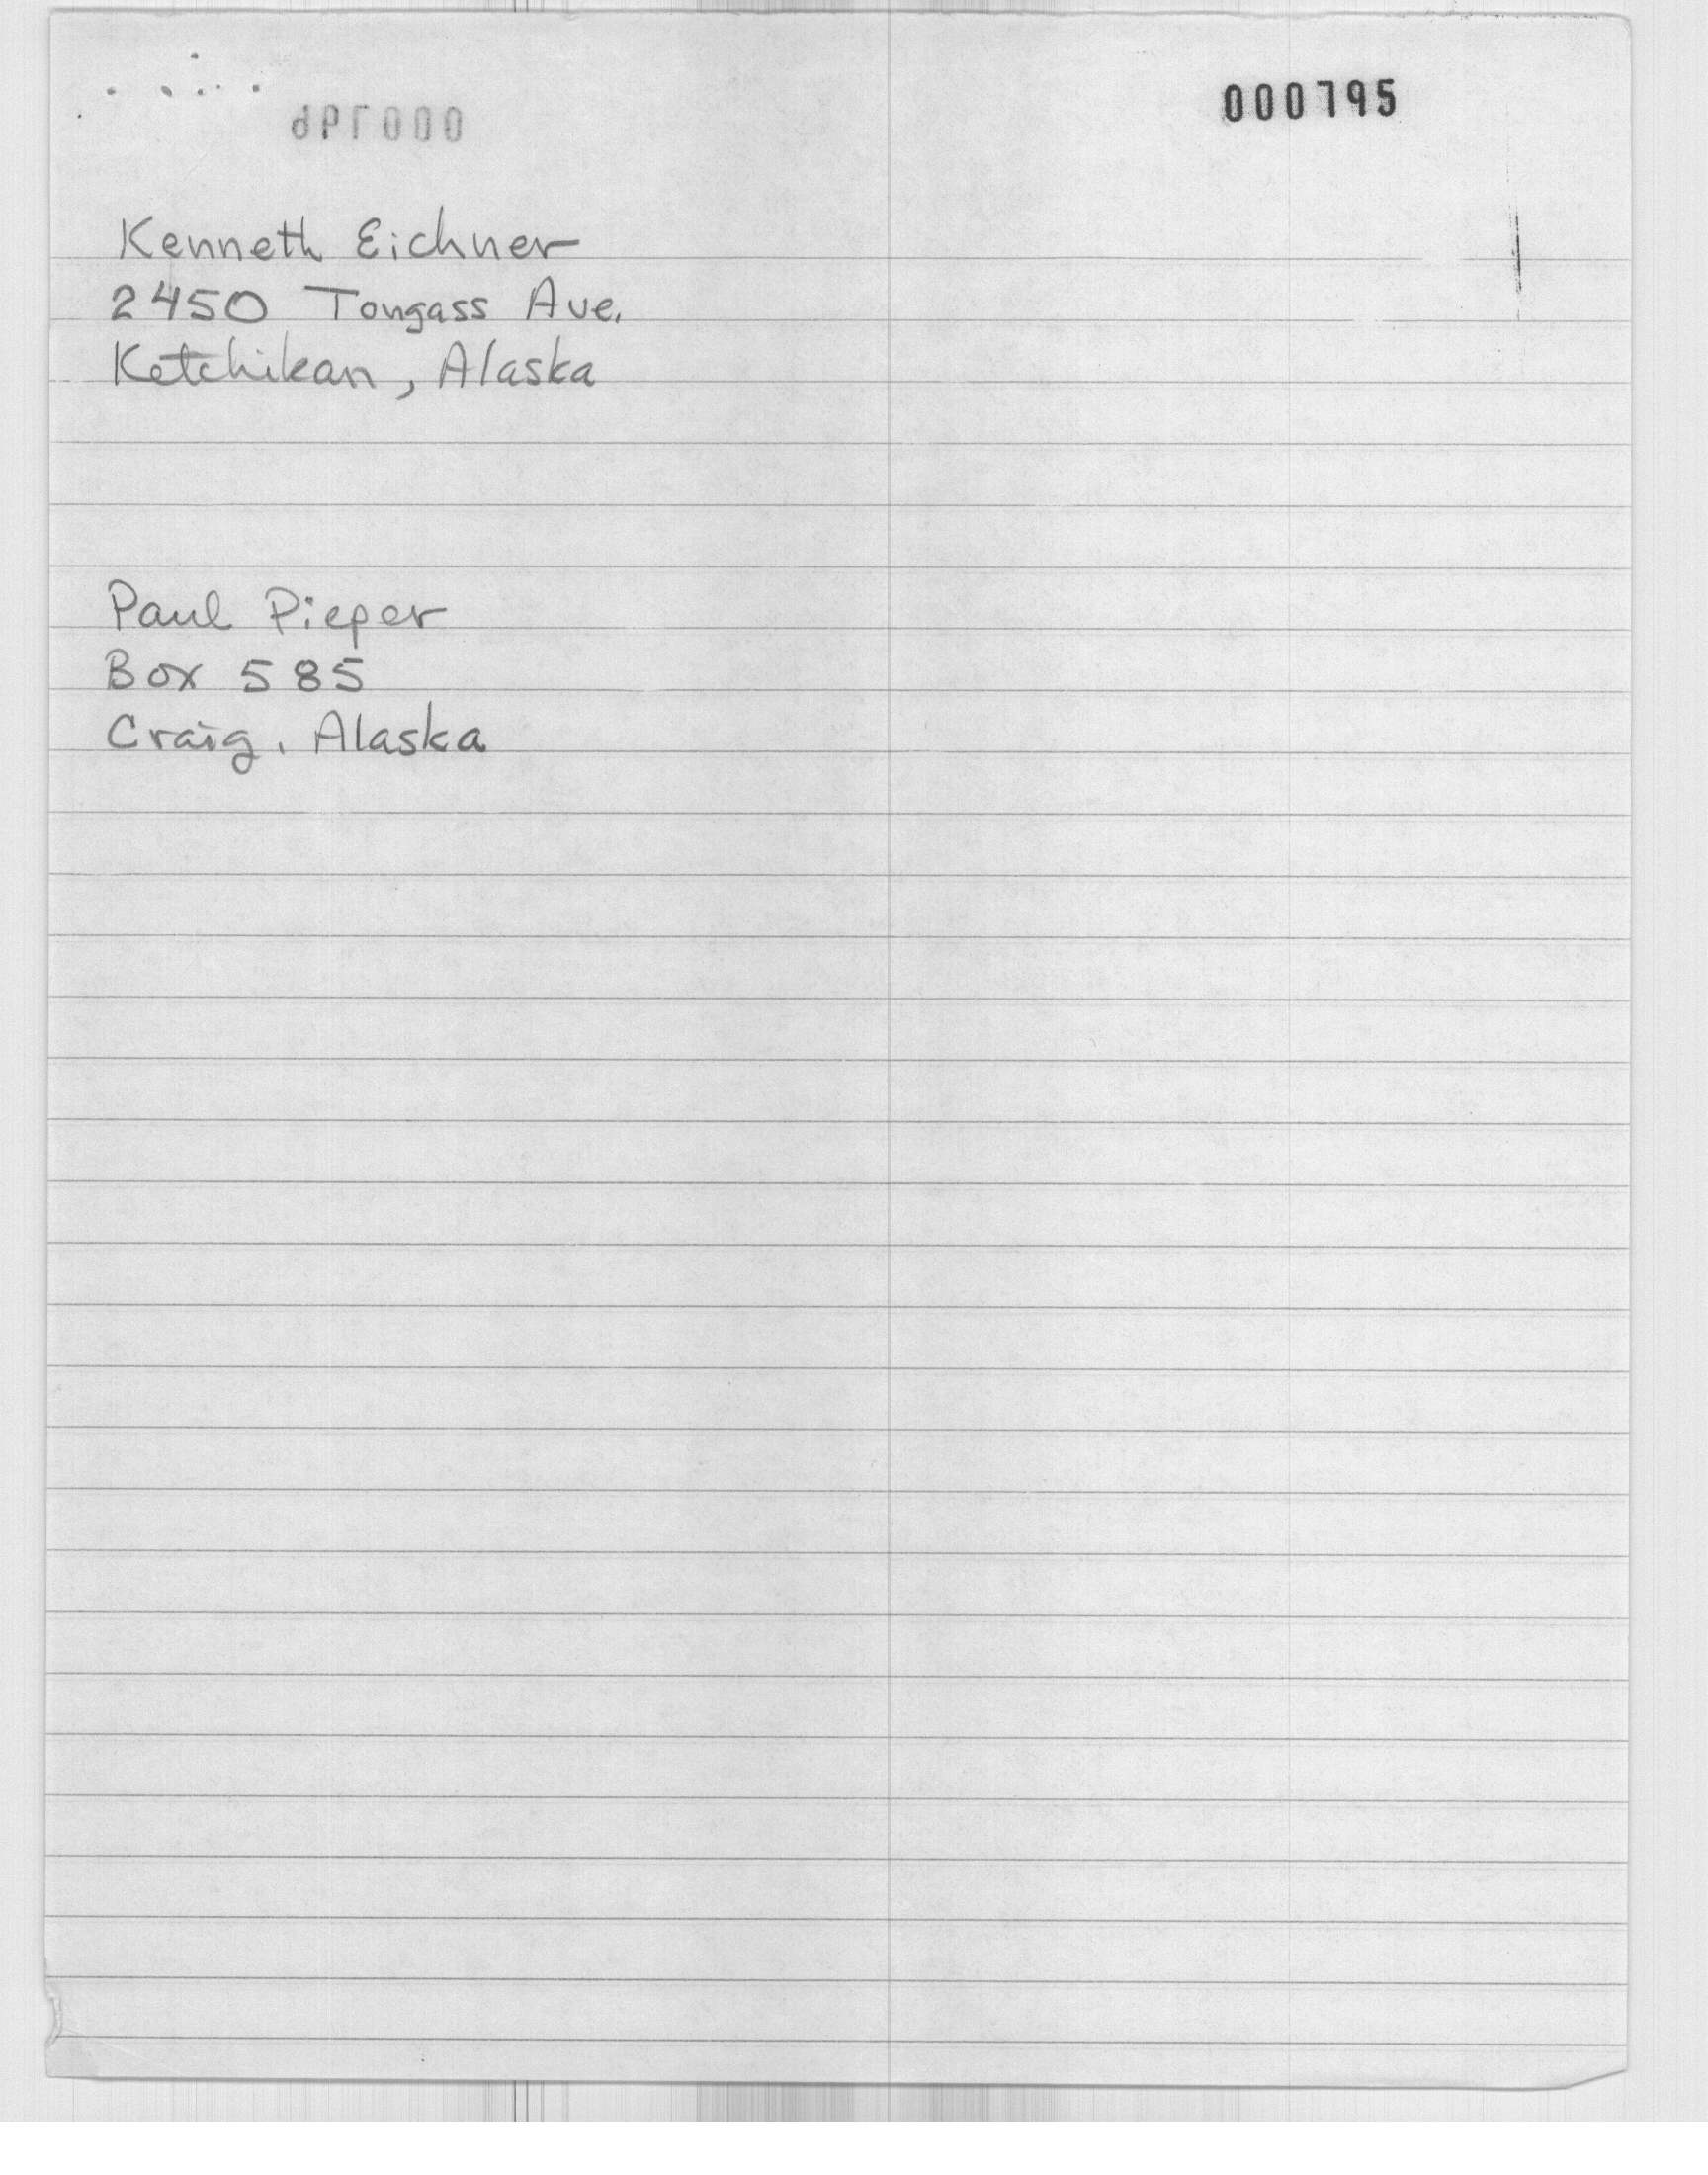 000795
Kenneth Eichner
2450 Tongass Ave.
Ketchikan, Alaska
Paul Pieper
Box 585
Craig, Alaska